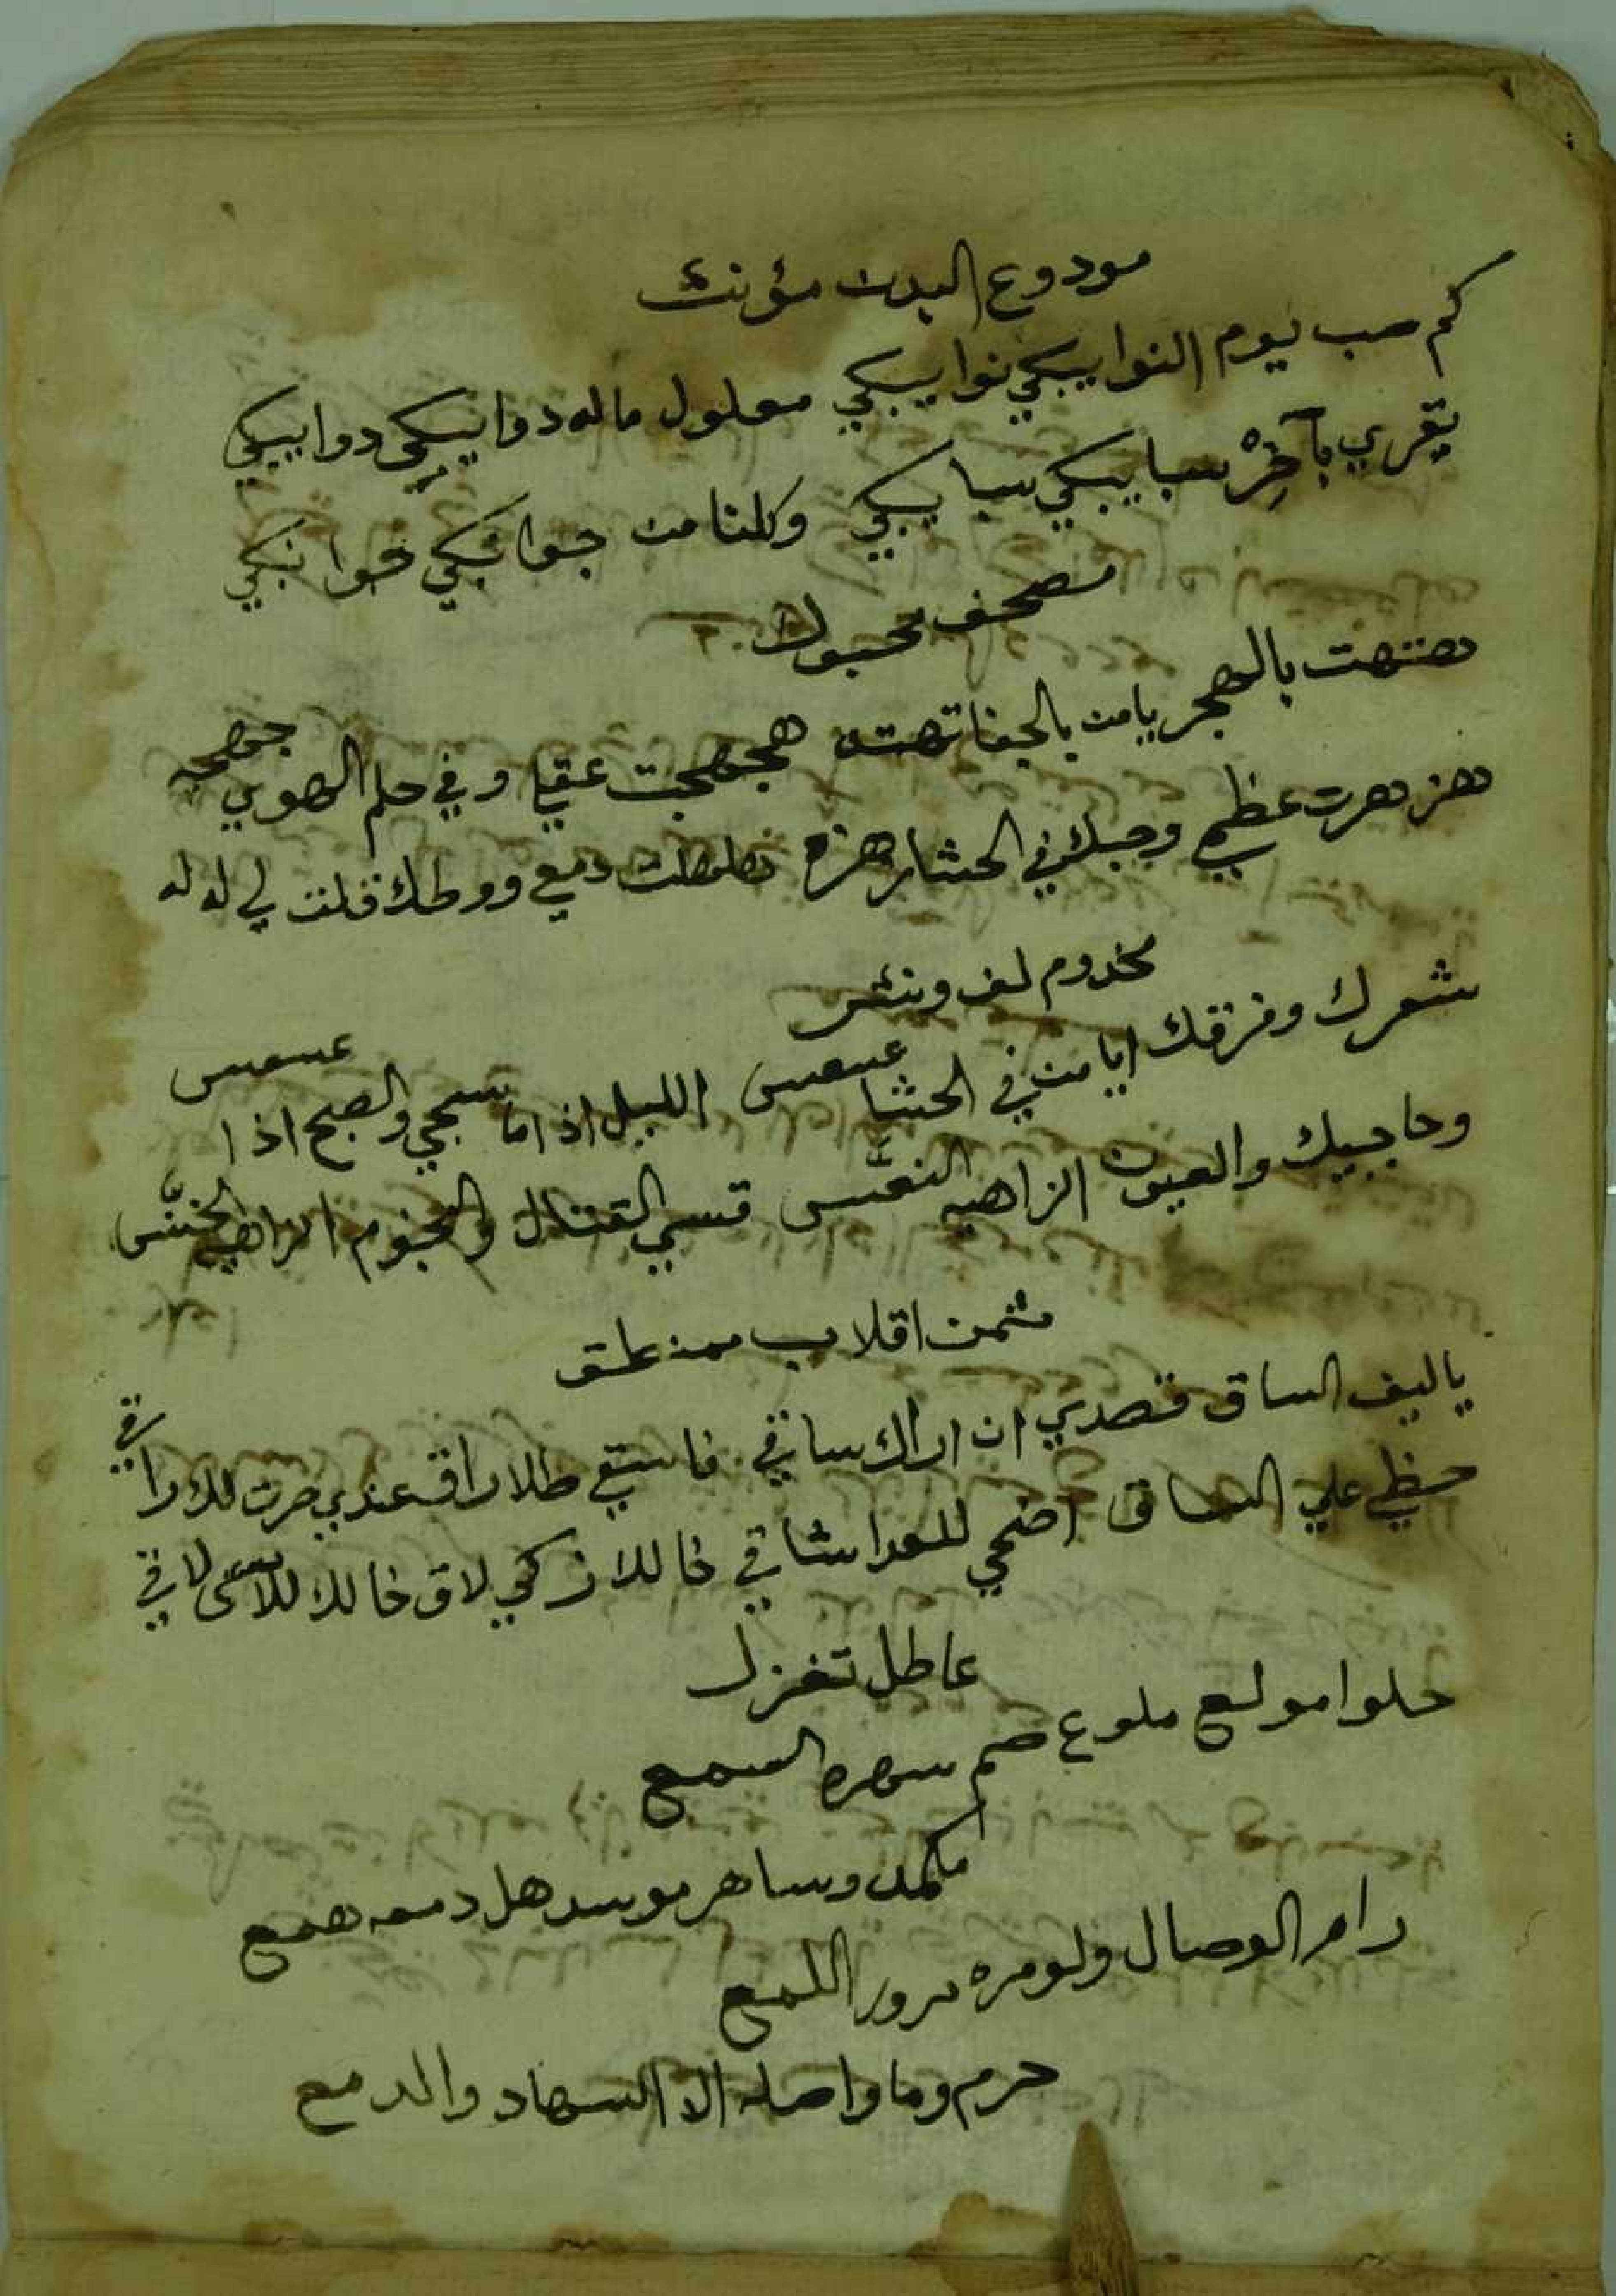 مودوع البدن مؤنث
كم صب يوم النوا يبكي نوا يبكي معلول ماله دوا يبكي دوا يبكي
يقري بآخره سبا يبكي سبا يبكي وكلنا من جوانكي
مصحف محبوك
بالهجر يامن بالجفا تهته هجهجت عقيا وفي حلم الهوي جهجه
عظمي وحبك في الحشا هزه دمعي ووطك قلت لي له له
مخدوم لف ونشر
شعرك وفرقك ايا من في الحشا عسعس الليل اذا ما سجي والصبح اذا عسعس
وحاجبيك والعيون الزاهيه النعّس قسي القتال والنجوم الزاهيه الخنّس
مثمن اقلاب
ياليف الساق قصدي ان اراك ساقي فاستقي طلا راق عندي صرت لك راقي
حظي علي الساق اضحي للعدا شاقي خالك زكي لاق خالك للاسى لاقي
عاطل تغزل
حلوا مولع ملوع صم سهره السمع
مكمد وساهر موسد هل دمعه همع
رام الوصال ولو مره مرور اللمع
حرم وما واصله الا السهاد والدمع